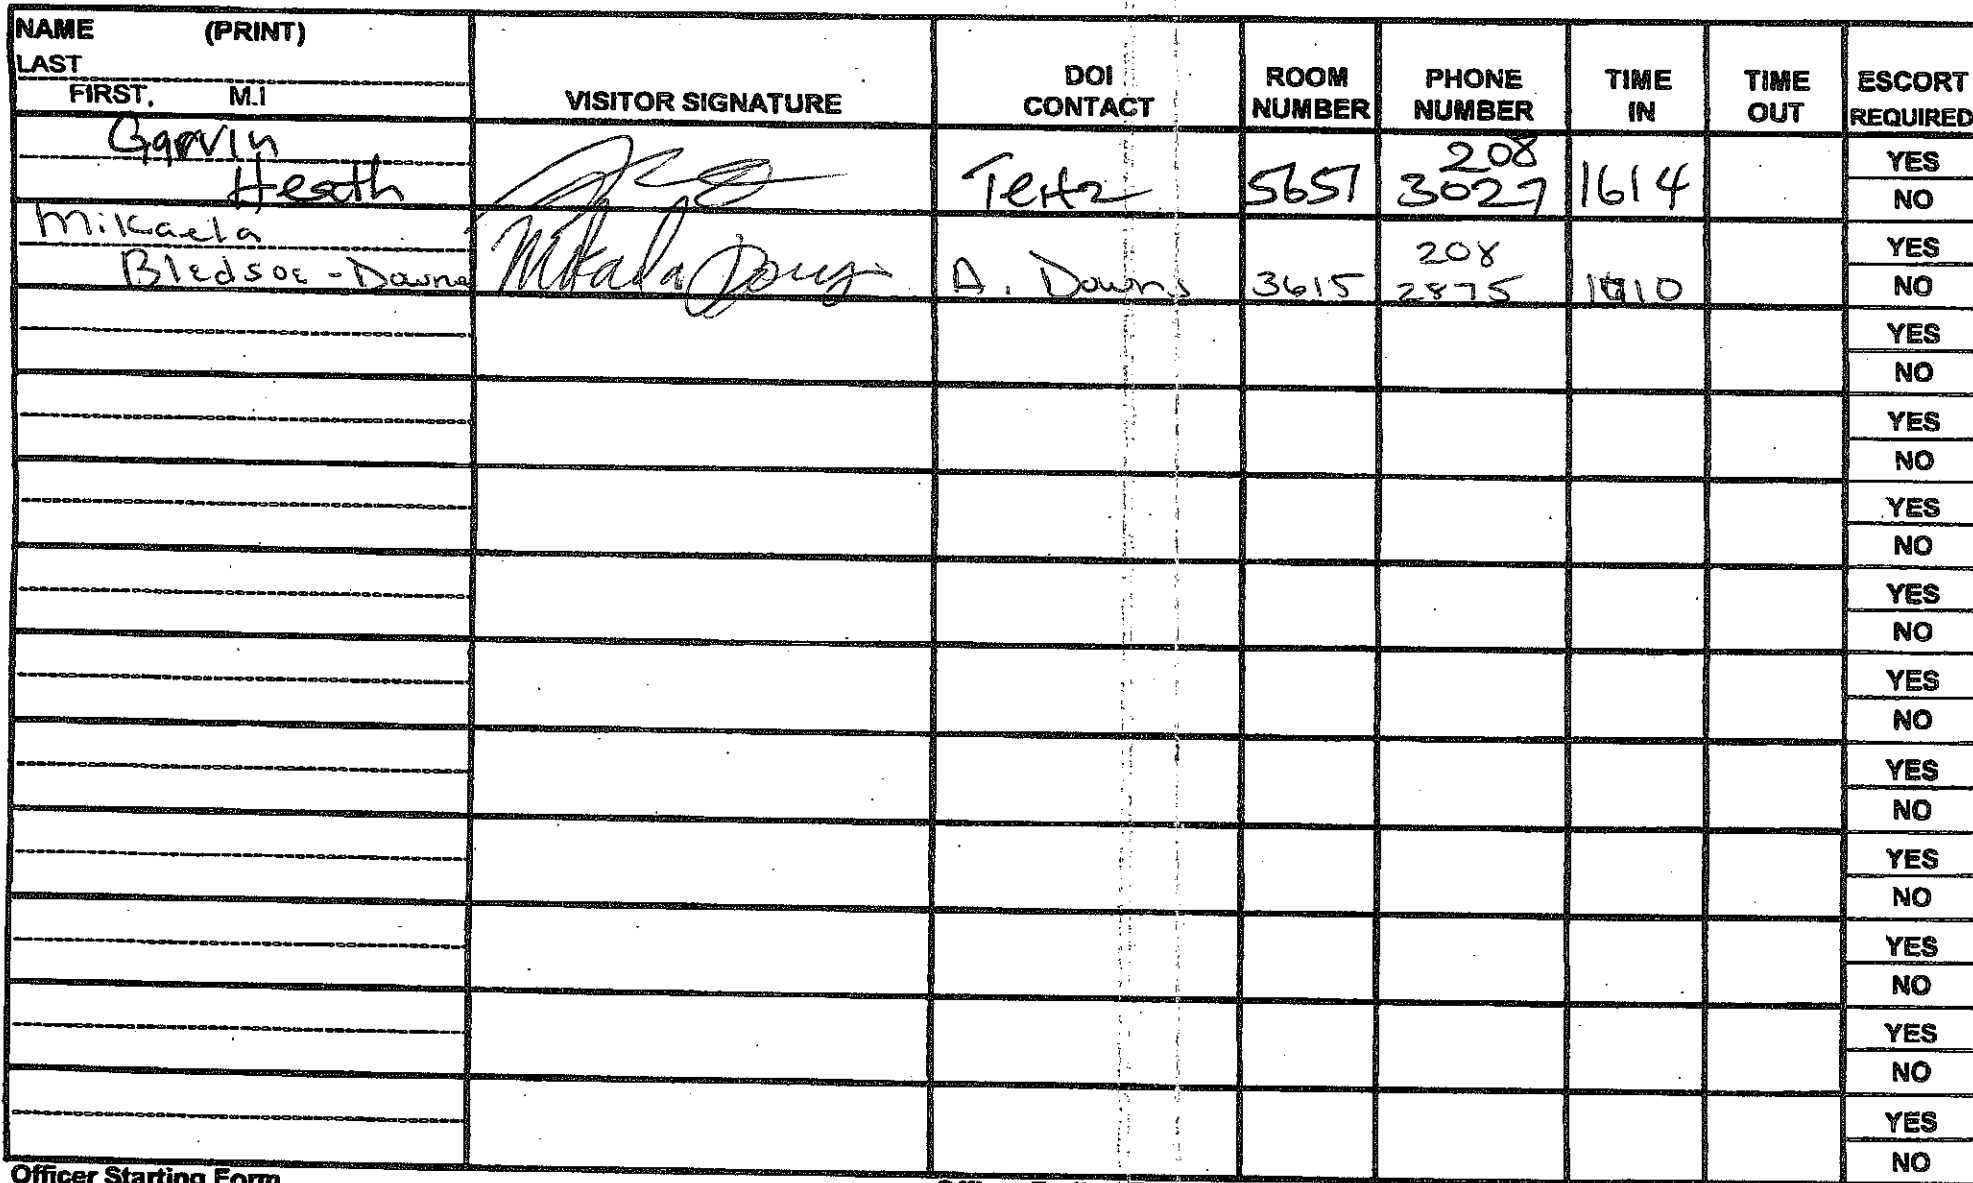 NAME (PRINT)
LAST
FIRST, M.I
VISITOR SIGNATURE
DOI
CONTACT
ROOM
NUMBER
PHONE
NUMBER
TIME
IN
TIME
OUT
ESCORT
REQUIRED
Garvin
Heath
5657
208
3027
1614
YES
NO
Mikaela
Bledsoe - Downs
Mikaela
A. Downs
3615
208
2875
YES
NO
YES
NO
YES
NO
YES
NO
YES
NO
YES
NO
YES
NO
YES
NO
YES
NO
YES
NO
YES
NO
Officer Starting Form